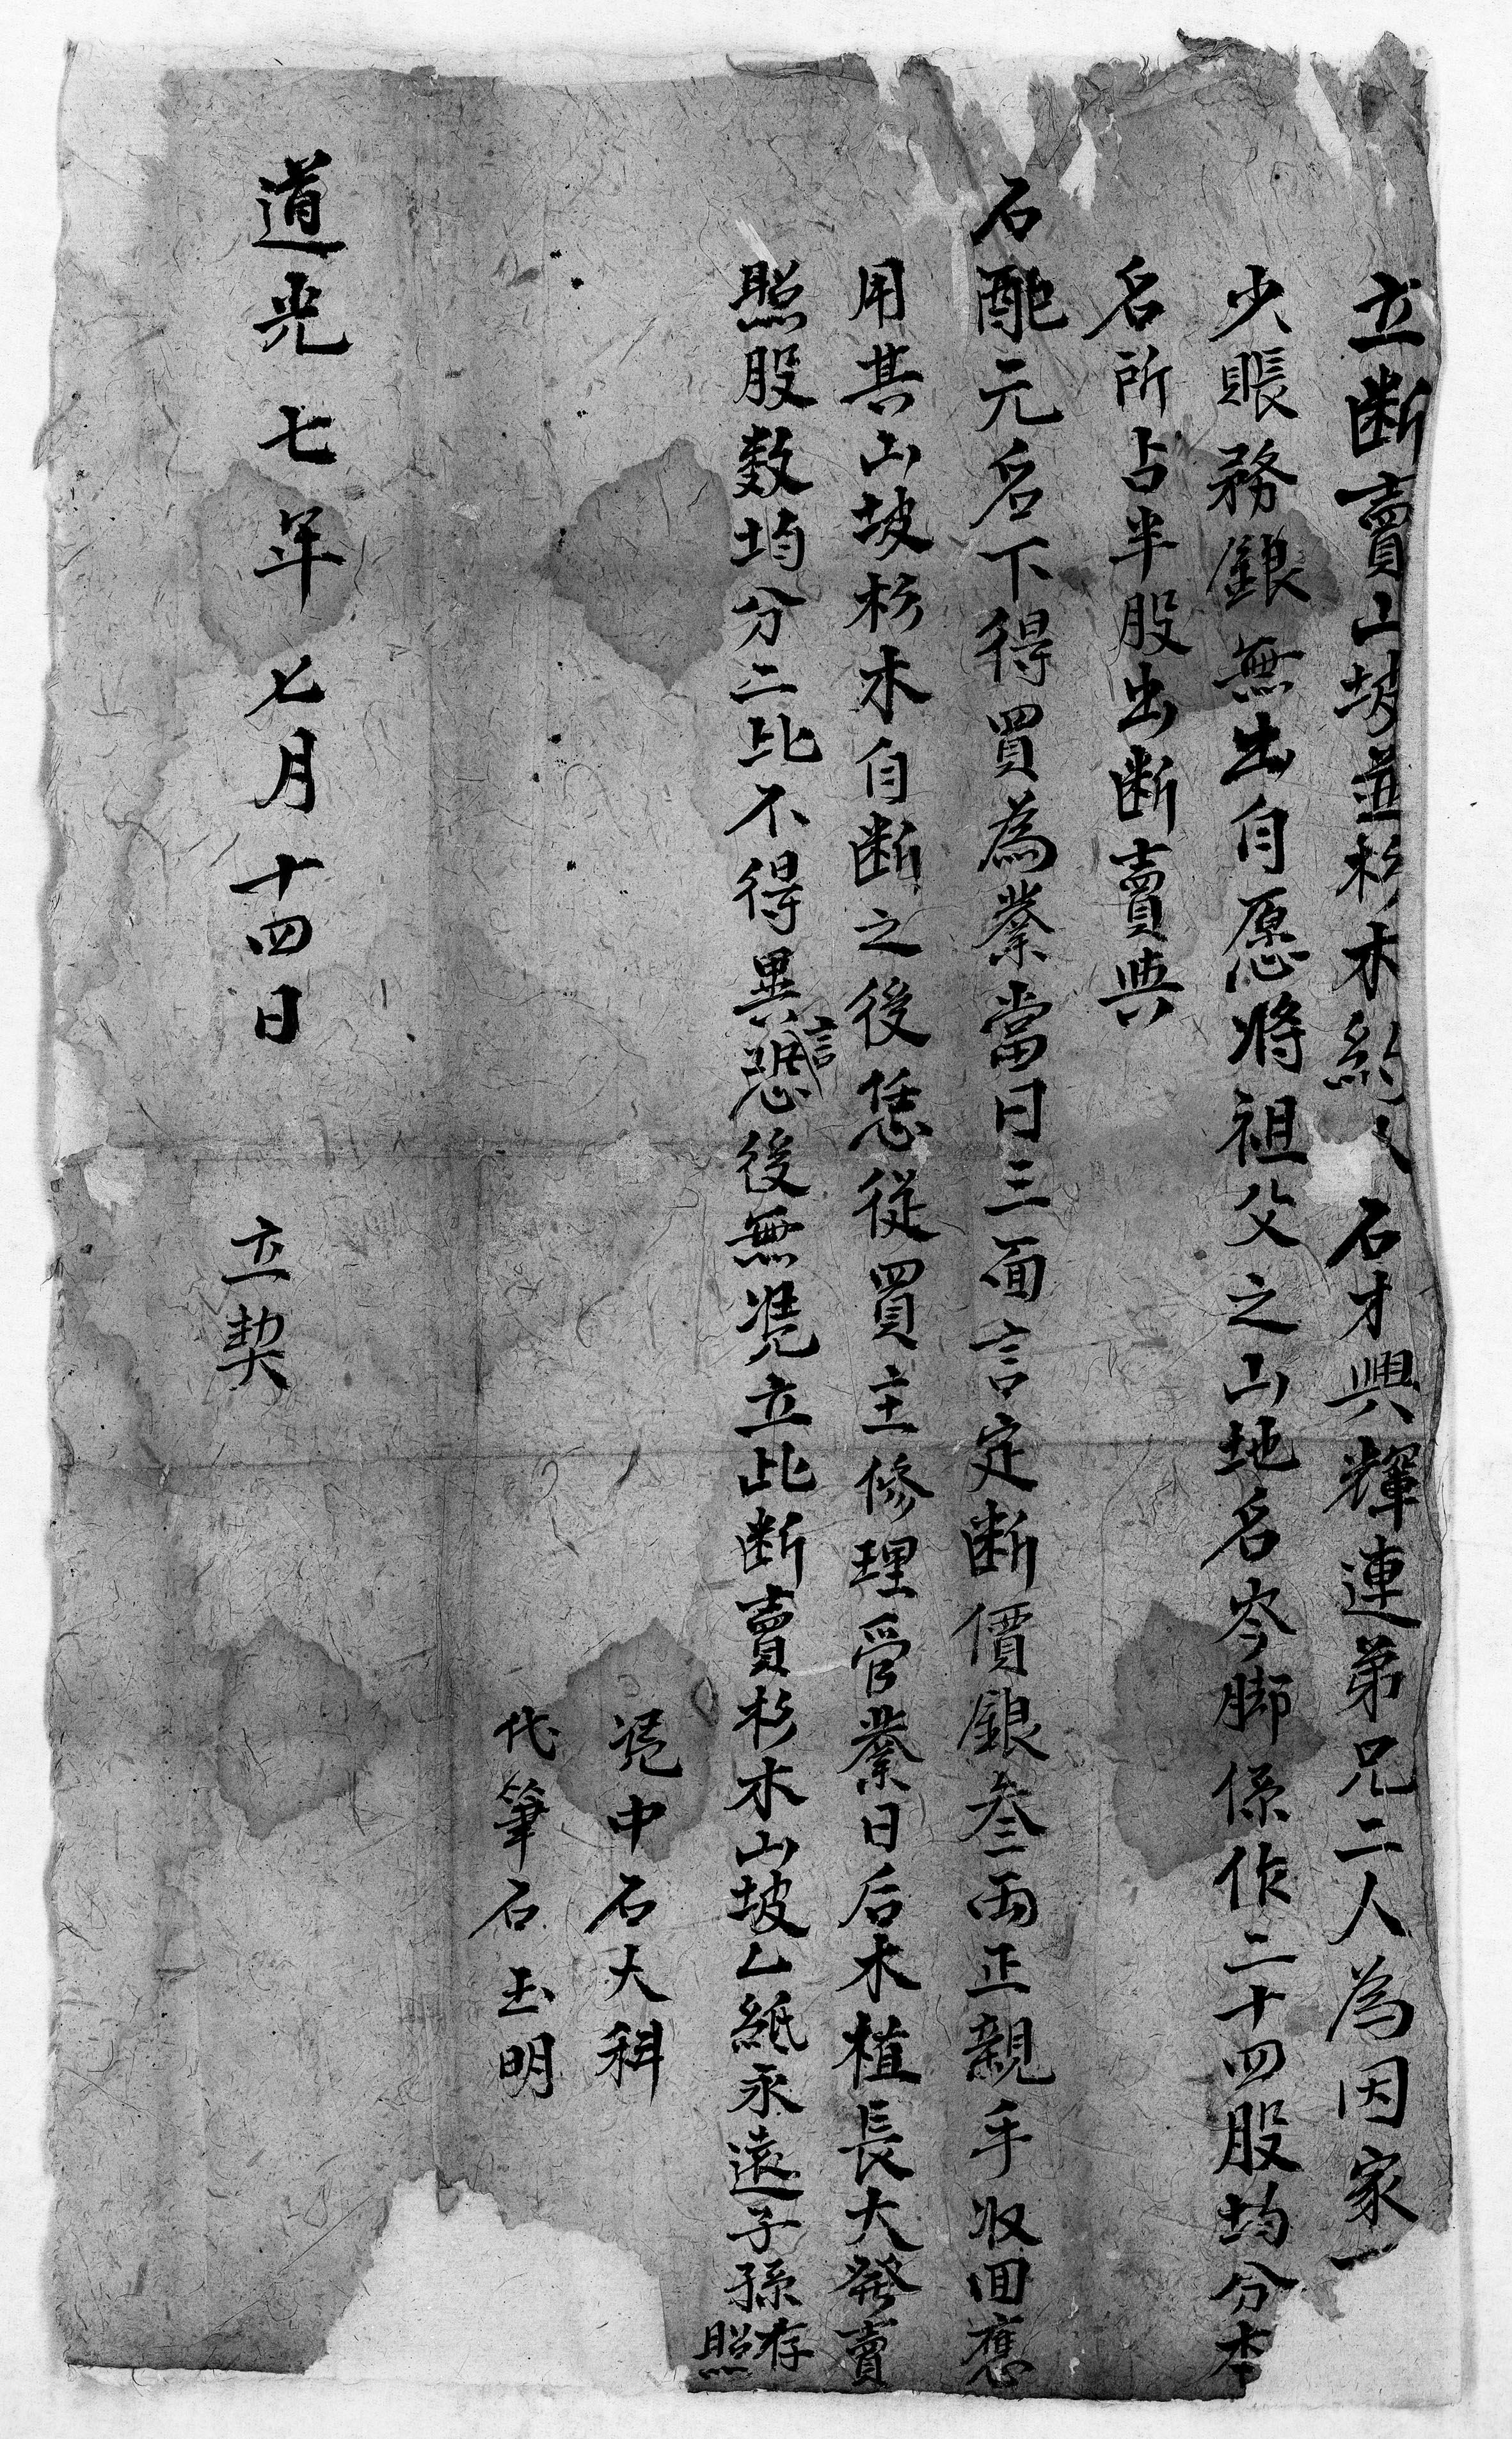 立断賣山坡並杉木約人石才興輝連弟兄二人為因家
少賬務銀無出自愿将祖父之山地名岑脚係作二十四股均分本
名所占半股出断賣與
石酏元名下得買為業當日三面言定断價銀叁両正親手收回應
用其山坡杉木自断之後恁從買主修理管業日后木植長大發賣
照股数均分二比不得異言恐後無凴立此断賣杉木山坡乙紙永遠子孫存照
凴中石大科
代筆石玉明
道光七年七月十四日 立契